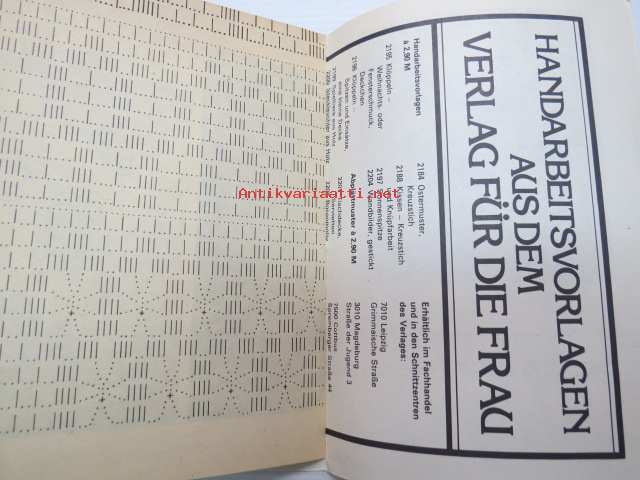 HANDARBEITSVORLAGEN
AUS DEM
VERLAG FÜR DIE FRAU
Handarbeitsvorlagen
à 2,90 M
2195 Klöppeln –
Weihnachts- oder
Fensterschmuck,
Deckchen
2196 Klöppeln –
Spitzen und Einsätze,
eine kleine Decke
2184 Ostermuster,
Kreuzstich
2188 Kissen – Kreuzstich
und Knüpfarbeit
2197 Sonnenspitze
2204 Wandbilder, gestickt
Abplättmuster à 2,90 M
Erhältlich im Fachhandel
und in den Schnittzentren
des Verlages:
7010 Leipzig
Grimmaische Straße
3010 Magdeburg
Straße der Jugend 3
7500 Cottbus
Spremberger Straße 44
Antikvariaatti.net